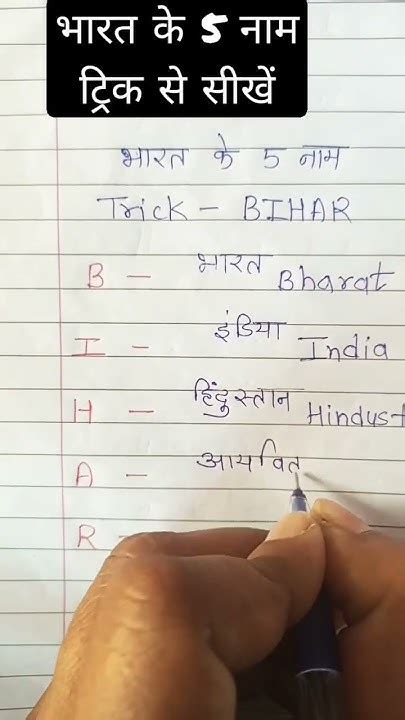 भारत के 5 नाम
ट्रिक से सीखें
भारत के 5 नाम
Trick - BIHAR
B - भारत Bharat
I - इंडिया India
H - हिंदुस्तान Hindust
A - आर्यावत
R -